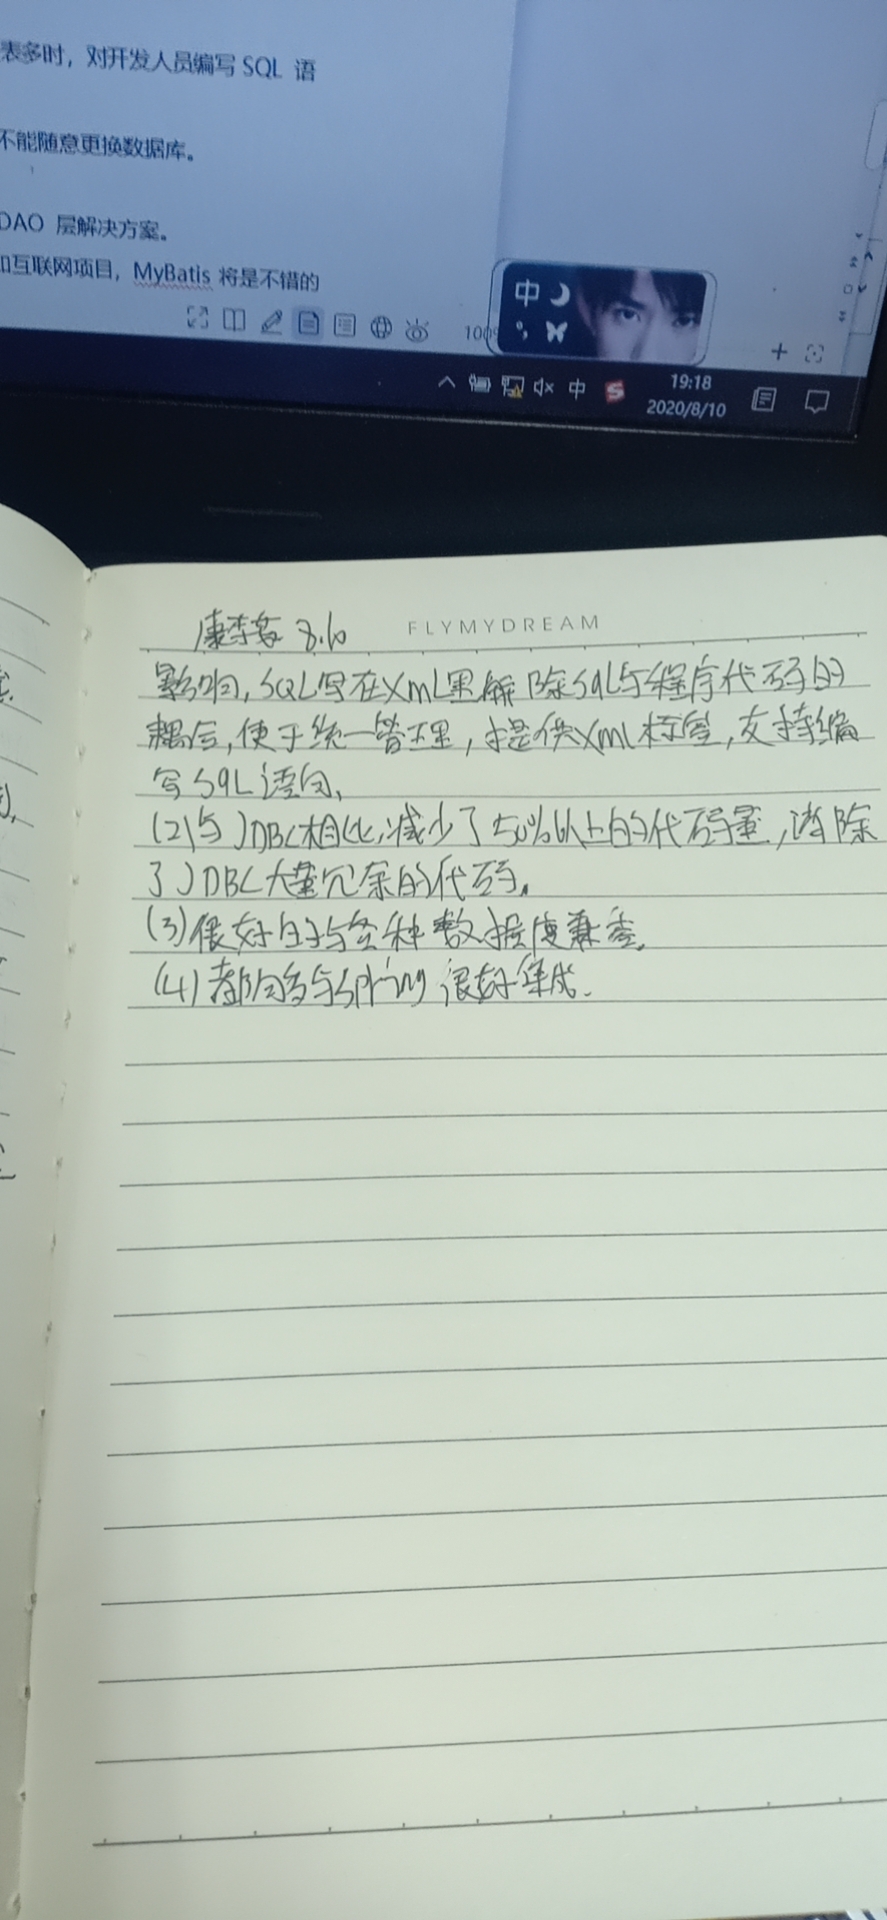 表多时，对开发人员编写 SQL 语
不能随意更换数据库。
DAO 层解决方案。
如互联网项目，MyBatis 将是不错的
中
100%
中
19:18
2020/8/10
8.10
FLYMYDREAM
影响，SQL写在xml里解除sql与程序代码的
耦合，便于统一管理，提供xml标签，支持编
写SQL语句，
(2)与JDBC相比，减少了50%以上的代码量，消除
了JDBC大量冗余的代码。
(3)很好的与各种数据库兼容。
(4)都能够与Spring很好集成。